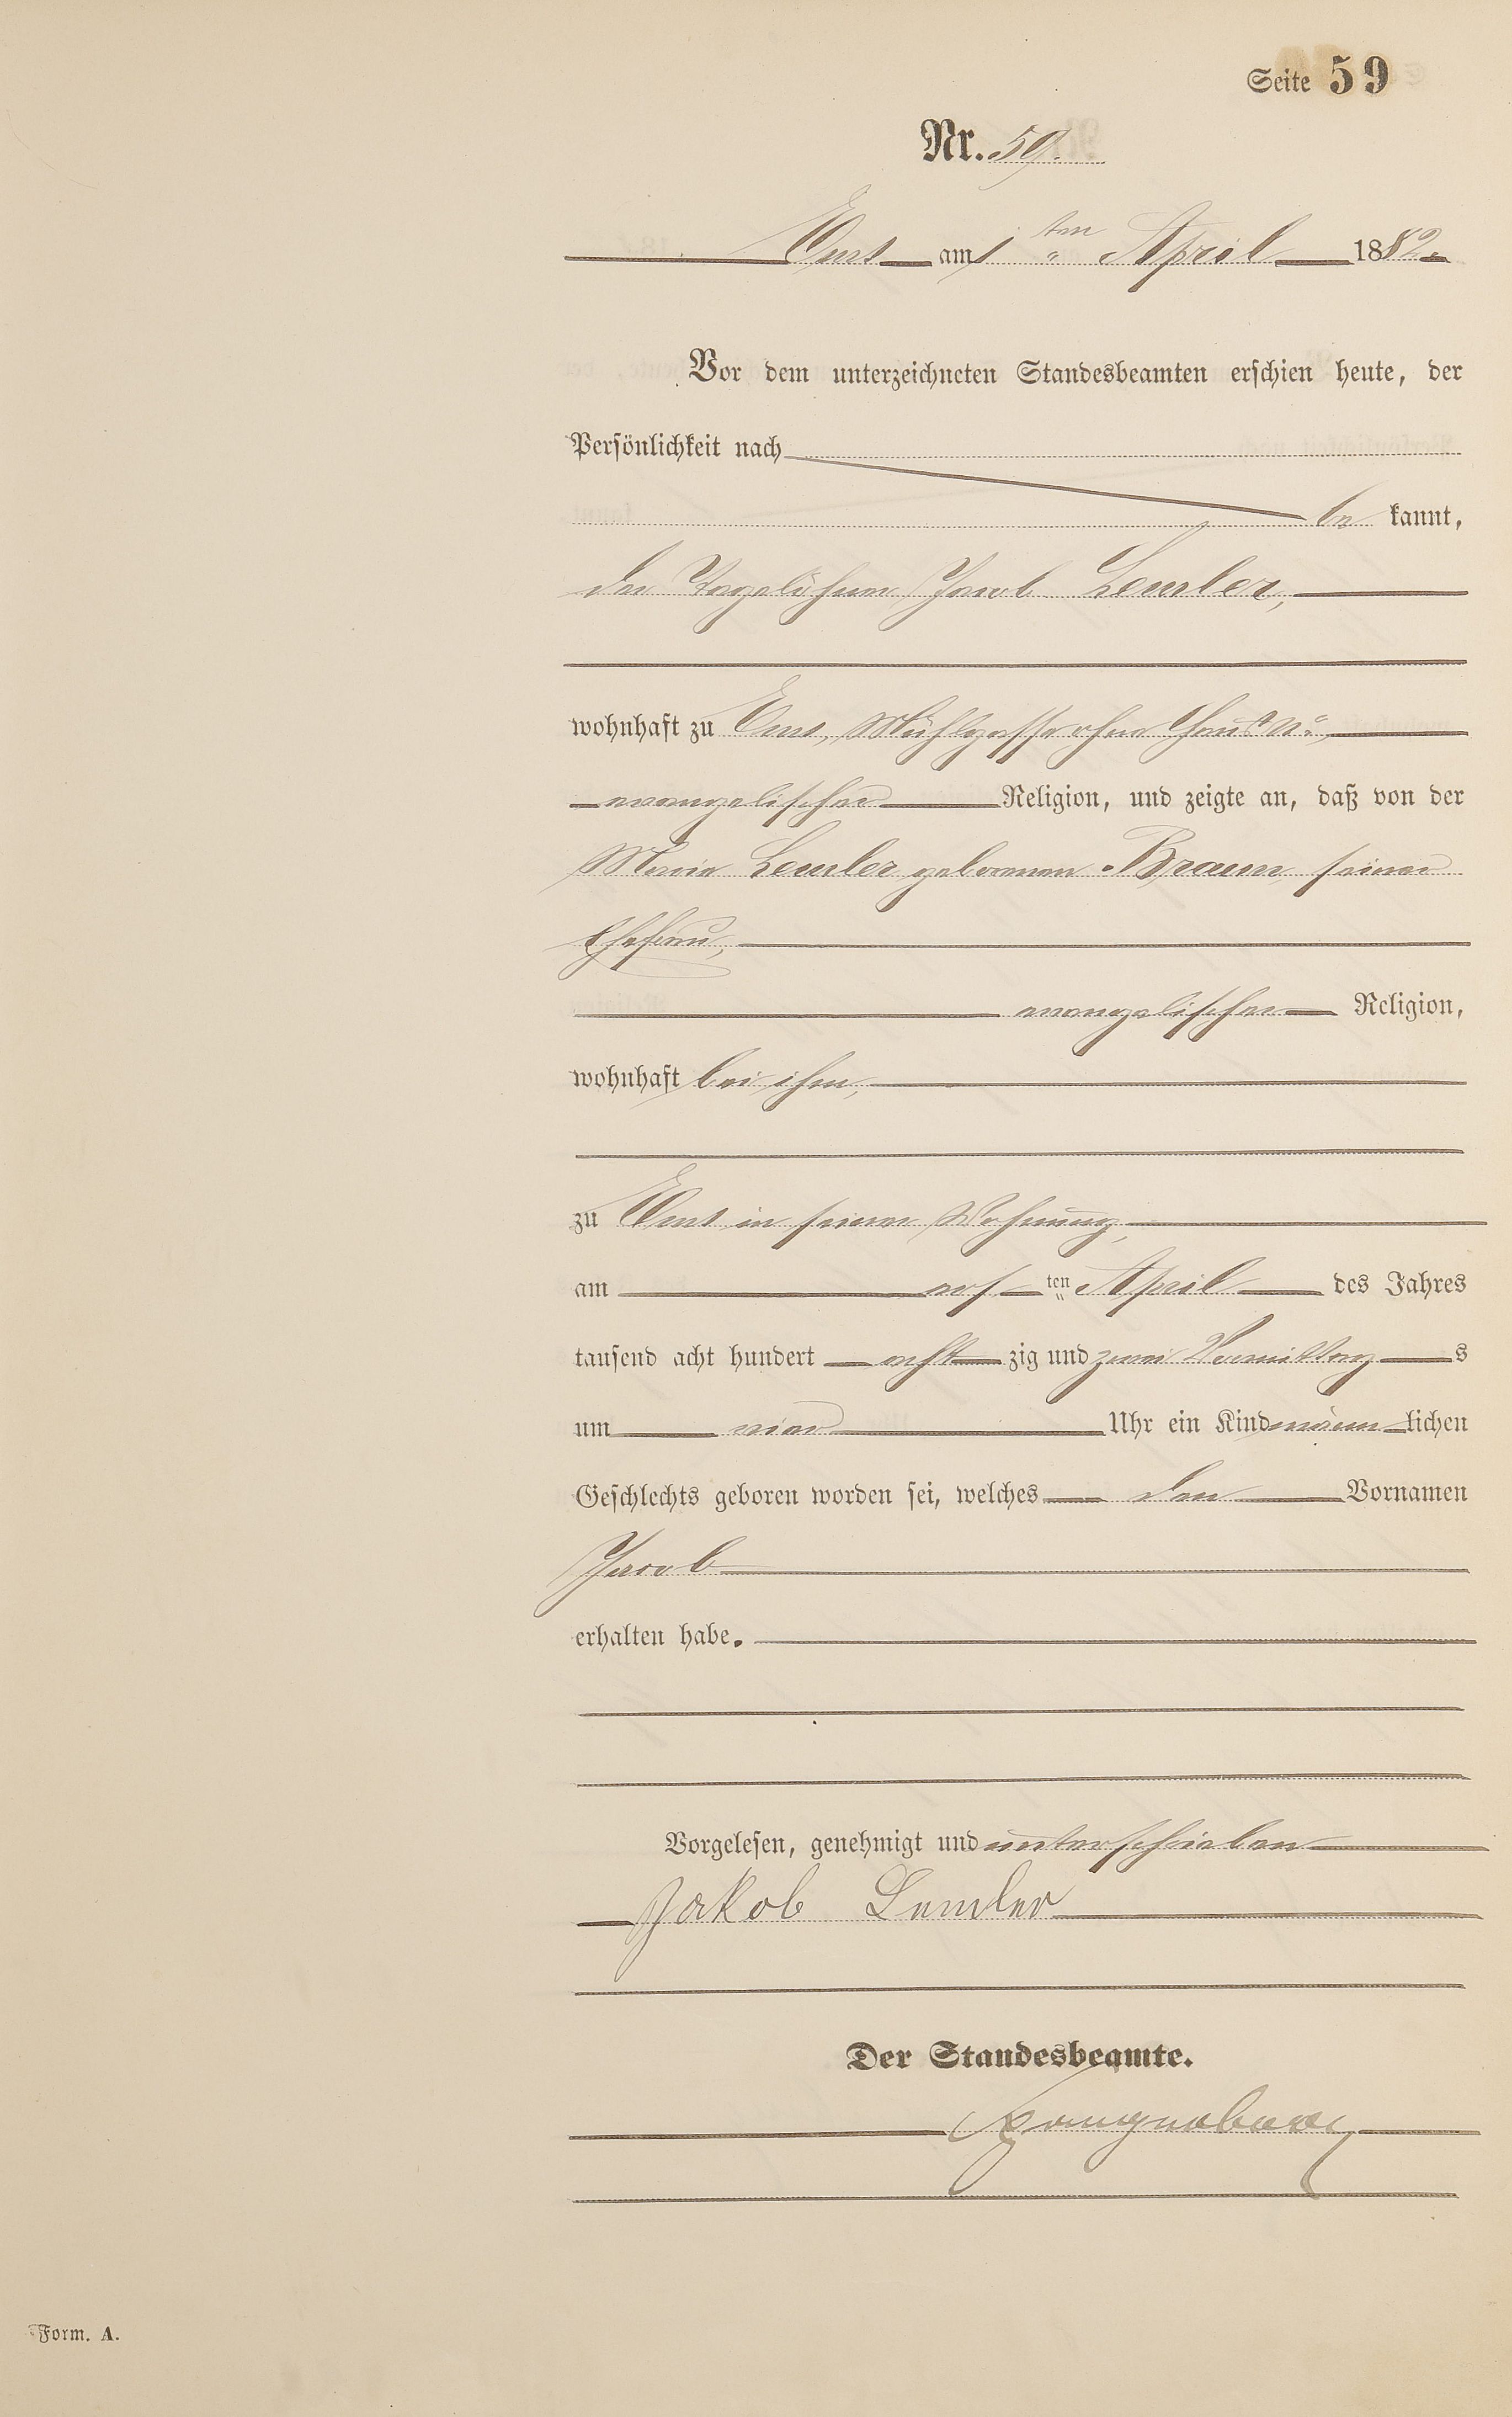 Seite 59
Nr. 59.
Ems am 1 ten April 1882.
Vor dem unterzeichneten Standesbeamten erschien heute, der
Persönlichkeit nach
be kannt,
der Tagelöhner Jacob Lemler,
wohnhaft zu Ems, Mühlgasse ohne Haus No,
evangelischer Religion, und zeigte an, daß von der
Maria Lemler geborenen Braun, seiner
Ehefrau,
evangelischer Religion,
wohnhaft bei ihm,
zu Ems in seiner Wohnung,
am ers ten April des Jahres
tausend acht hundert acht zig und zwei Vormittag s
um vier Uhr ein Kind männ lichen
Geschlechts geboren worden sei, welches den Vornamen
Jacob
erhalten habe.
Vorgelesen, genehmigt und unterschrieben
Jakob Lemler
Der Standesbeamte.
Form. A.